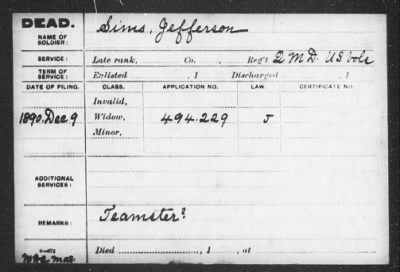 DEAD.
NAME OF SOLDIER: Sims, Jefferson
SERVICE: Late rank, Co. Reg't 2 M.D. US Vols
TERM OF SERVICE: Enlisted , 1 Discharged , 1
DATE OF FILING. CLASS. APPLICATION NO. LAW. CERTIFICATE NO.
Invalid,
1890. Dec 9 Widow, 494.229 J
Minor,
ADDITIONAL SERVICES:
REMARKS: Teamster?
Died , 1 , at